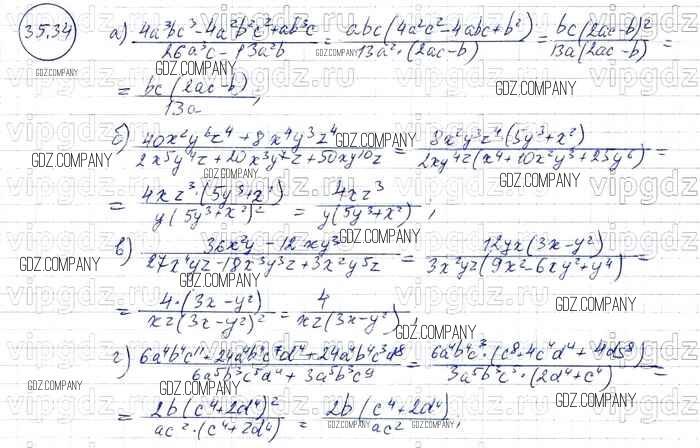 35.34 а) (4a³bc³ - 4a²b²c² + ab³c)/(26a³c - 13a²b) = abc(4a²c² - 4abc + b²)/(13a²·(2ac - b)) = bc(2ac - b)²/(13a(2ac - b)) =
= bc(2ac - b)/13a ;
б) (40x²y⁶z⁴ + 8x⁴y³z⁴)/(2x⁵y⁴z + 20x³y⁷z + 50xy¹⁰z) = 8x²y³z⁴·(5y³ + x²)/(2xy⁴z(x⁴ + 10x²y³ + 25y⁶)) =
= 4xz³·(5y³ + x²)/(y(5y³ + x²)²) = 4xz³/(y(5y³ + x²)) ;
в) (36x²y - 12xy³)/(27x⁴yz - 18x³y³z + 3x²y⁵z) = 12yx(3x - y²)/(3x²yz(9x² - 6xy² + y⁴)) =
= 4·(3x - y²)/(xz(3x - y²)²) = 4/(xz(3x - y²)) ;
г) (6a⁴b⁴c¹¹ + 24a⁴b⁴c⁷d⁴ + 24a⁴b⁴c³d⁸)/(6a⁵b³c⁵d⁴ + 3a⁵b³c⁹) = 6a⁴b⁴c³·(c⁸ + 4c⁴d⁴ + 4d⁸)/(3a⁵b³c⁵·(2d⁴ + c⁴)) =
= 2b(c⁴ + 2d⁴)²/(ac²·(c⁴ + 2d⁴)) = 2b(c⁴ + 2d⁴)/ac² ;